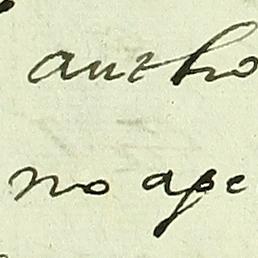 autho
no ape